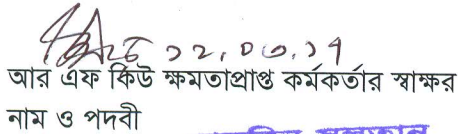 ১২.০৩.১৭
আর এফ কিউ ক্ষমতাপ্রাপ্ত কর্মকর্তার স্বাক্ষর
নাম ও পদবী